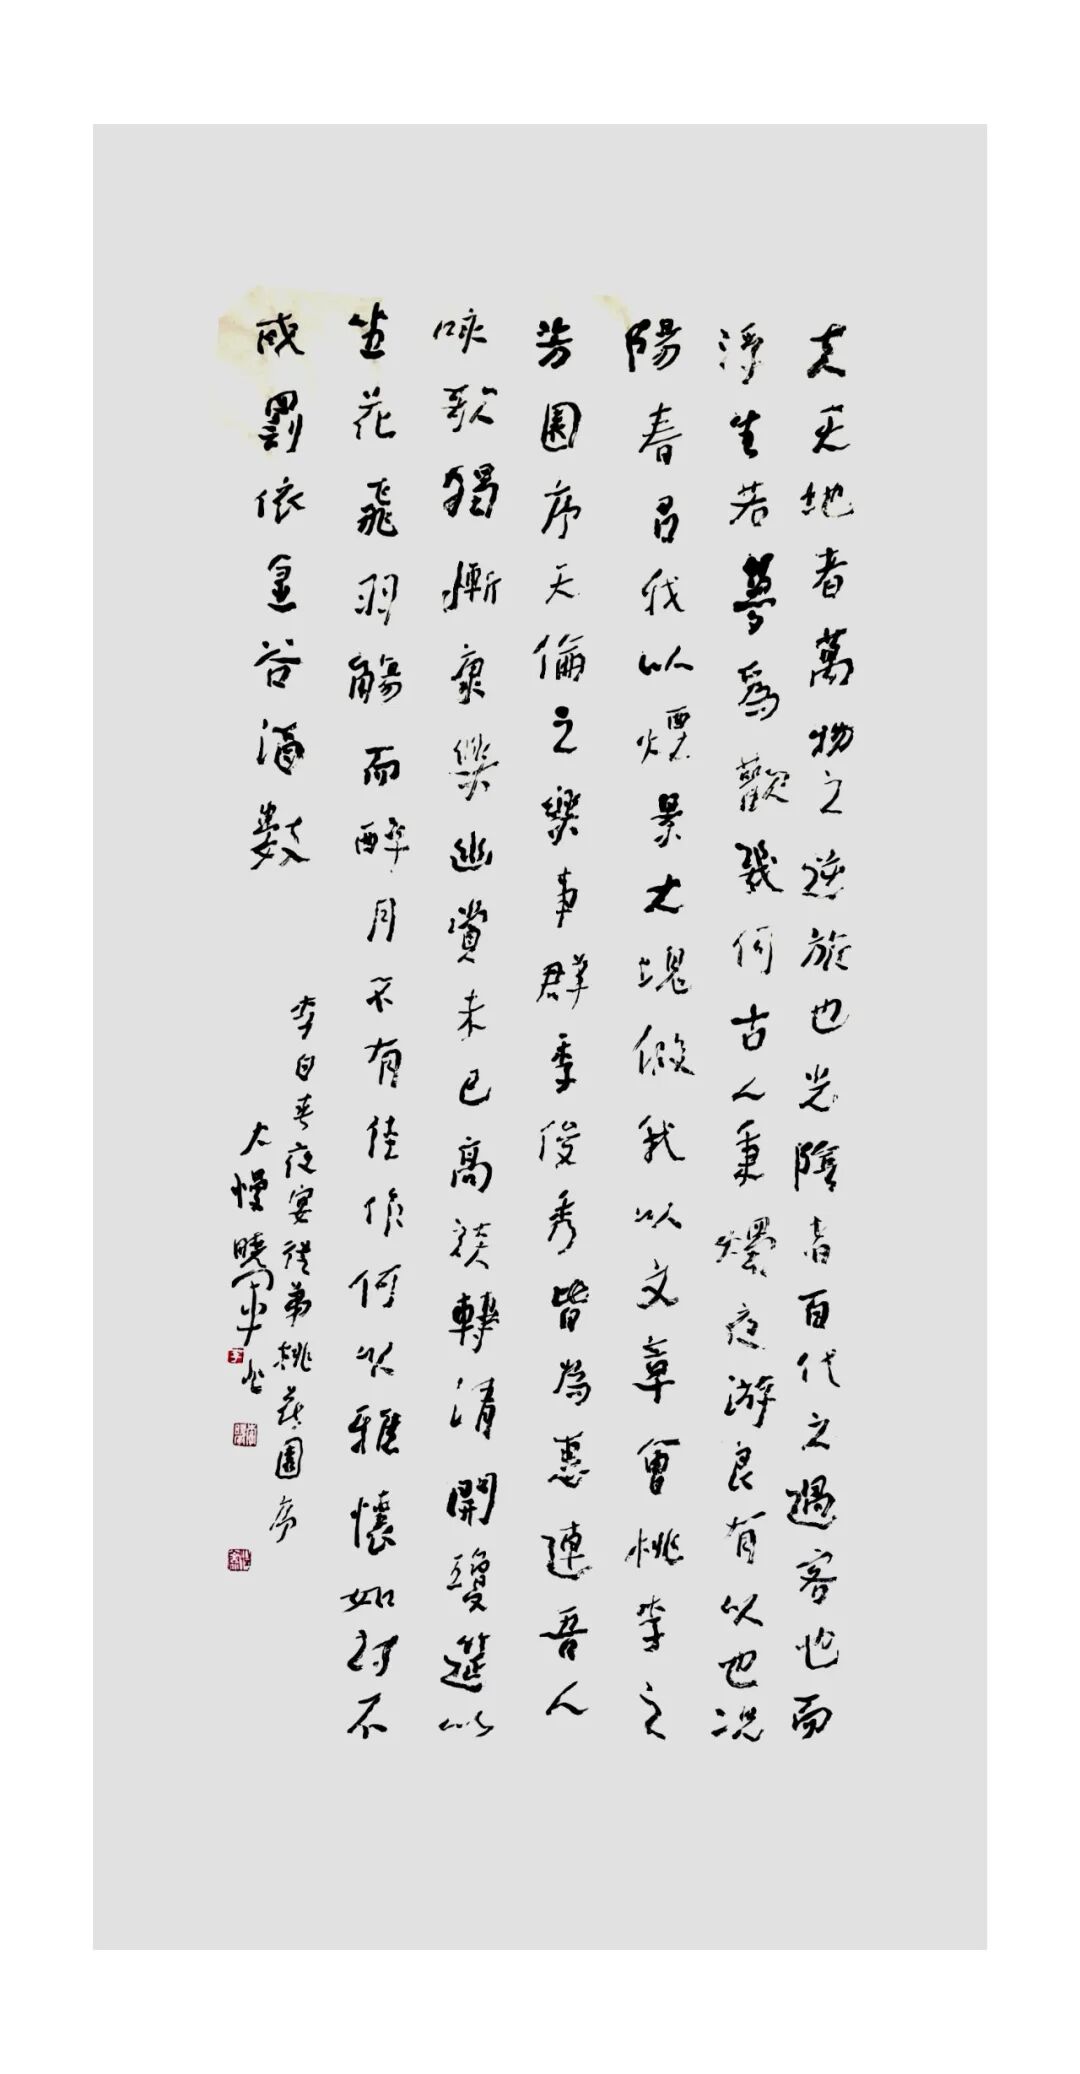 夫天地者萬物之逆旅也光陰者百代之過客也而
浮生若夢為歡幾何古人秉燭夜游良有以也況
陽春召我以煙景大塊假我以文章會桃李之
芳園序天倫之樂事群季俊秀皆為惠連吾人
咏歌獨慚康樂幽賞未已高談轉清開瓊筵以
坐花飛羽觴而醉月不有佳作何以雅懷如詩不
成罰依金谷酒數
李白春夜宴從弟桃花園序
大慢曉